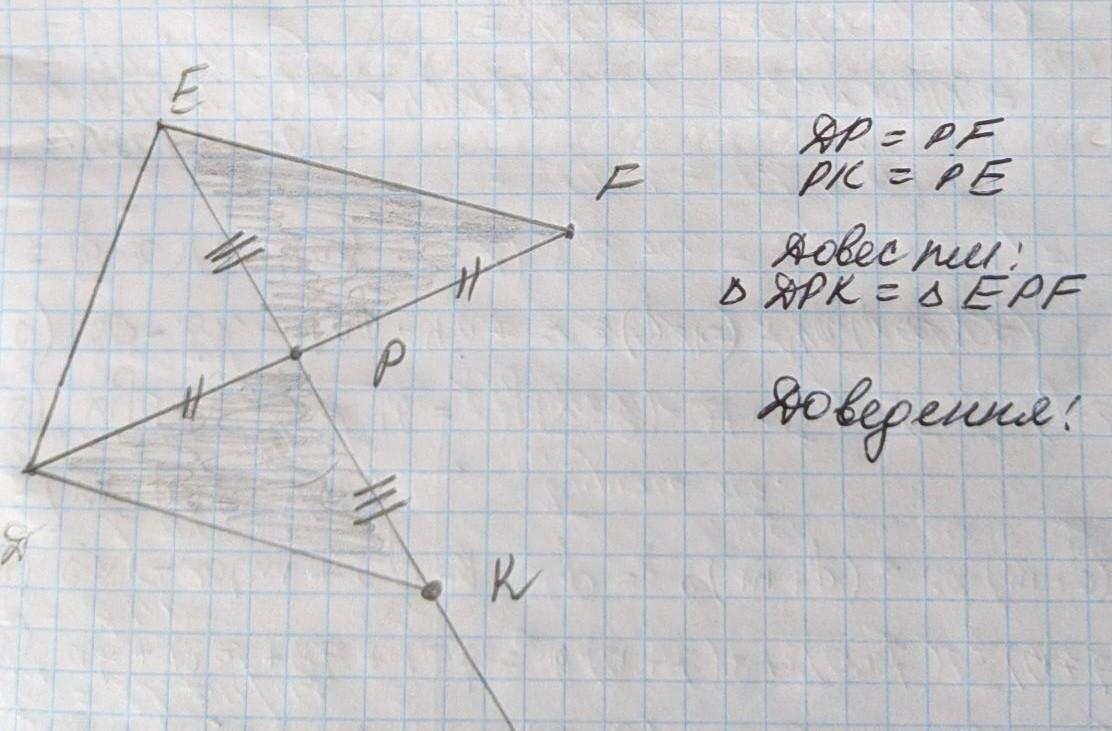 E
F
P
Д
K
ДP = PF
PK = PE
Довести:
Δ ДPK = Δ EPF
Доведення: